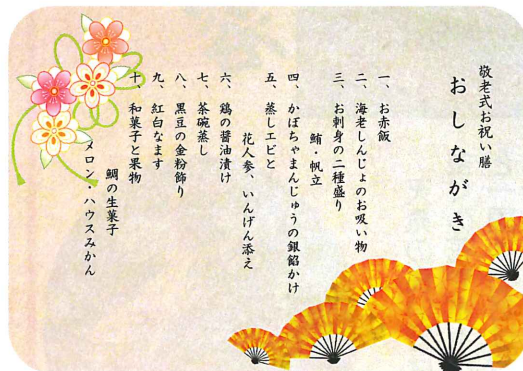 敬老式お祝い膳
おしながき
一、お赤飯
二、海老しんじょのお吸い物
三、お刺身の二種盛り
鮪・帆立
四、かぼちゃまんじゅうの銀餡かけ
五、蒸しエビと
花人参、いんげん添え
六、鶏の醤油漬け
七、茶碗蒸し
八、黒豆の金粉飾り
九、紅白なます
十、和菓子と果物
鯛の生菓子
メロン・ハウスみかん